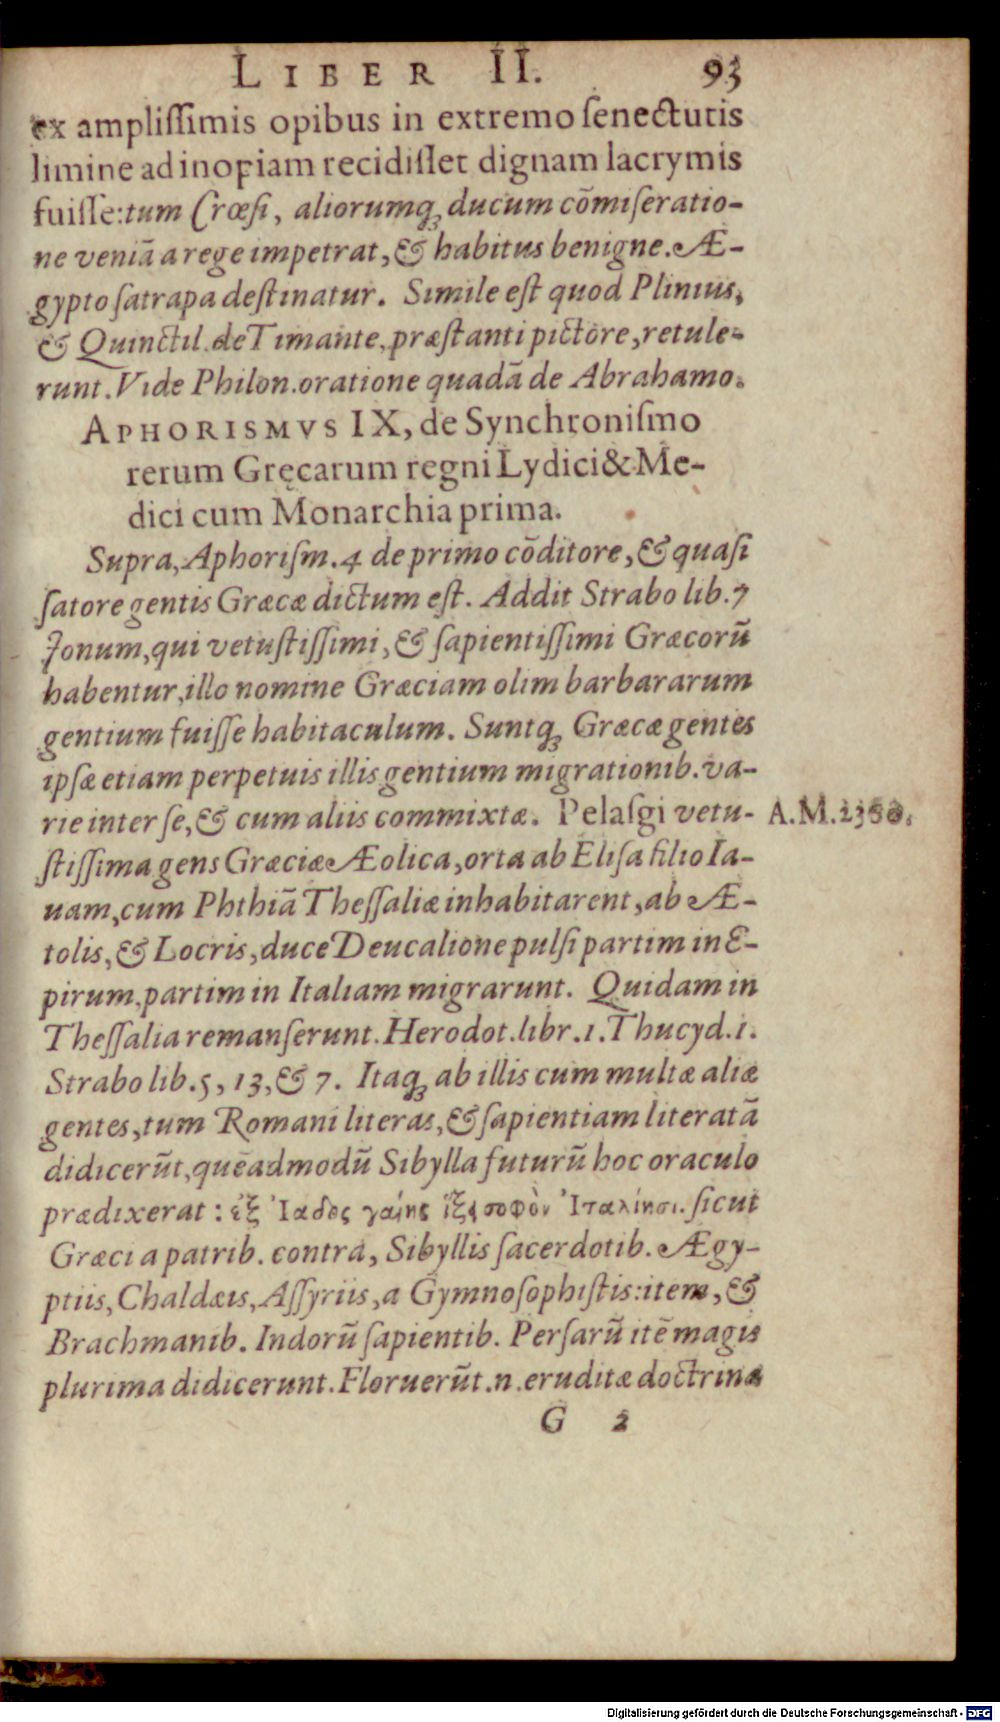 LIBER II. 93
ex ampliſſimis opibus in extremo ſenectutis
limine ad inopiam recidiſſet dignam lacrymis
fuiſſe: tum Crœſi, aliorumq́ꝫ ducum cõmiſeratio-
ne veniã a rege impetrat, & habitus benigne. Æ-
gypto ſatrapa deſtinatur. Simile eſt quod Plinius,
& Quinctil. de Timante, præſtanti pictore, retule-
runt. Vide Philon. oratione quadã de Abrahamo.
APHORISMVS IX, de Synchroniſmo
rerum Gręcarum regni Lydici & Me-
dici cum Monarchia prima.
Supra, Aphoriſm. 4 de primo cõditore, & quaſi
ſatore gentis Græcæ dictum eſt. Addit Strabo lib. 7
Jonum, qui vetuſtiſſimi, & ſapientiſſimi Græcorũ
habentur, illo nomine Græciam olim barbararum
gentium fuiſſe habitaculum. Suntqꝫ Græcæ gentes
ipſæ etiam perpetuis illis gentium migrationib. va-
rie inter ſe, & cum aliis commixtæ. Pelaſgi vetu-
A.M.
ſtiſſima gens Græciæ Æolica, orta ab Eliſa filio Ia-
uam, cum Phthiã Theſſaliæ inhabitarent, ab Æ-
tolis, & Locris, duce Deucalione pulſi partim in E-
pirum, partim in Italiam migrarunt. Quidam in
Theſſalia remanſerunt. Herodot. libr. 1. Thucyd. 1.
Strabo lib. 5, 13, & 7. Itaqꝫ ab illis cum multæ aliæ
gentes, tum Romani literas, & ſapientiam literatã
didicerũt, quẽadmodũ Sibylla futurũ hoc oraculo
prædixerat: ἐξ Ἰαδος γαίης ἥξει σοφὸν Ἰταλίησι. ſicut
Græci a patrib. contra, Sibyllis ſacerdotib. Ægy-
ptiis, Chaldæis, Aſſyriis, a Gymnoſophiſtis: item, &
Brachmanib. Indorũ ſapientib. Perſarũ itẽ magis
plurima didicerunt. Floruerũt. n. eruditæ doctrinæ
G 2
Digitalisierung gefördert durch die Deutsche Forschungsgemeinschaft - DFG